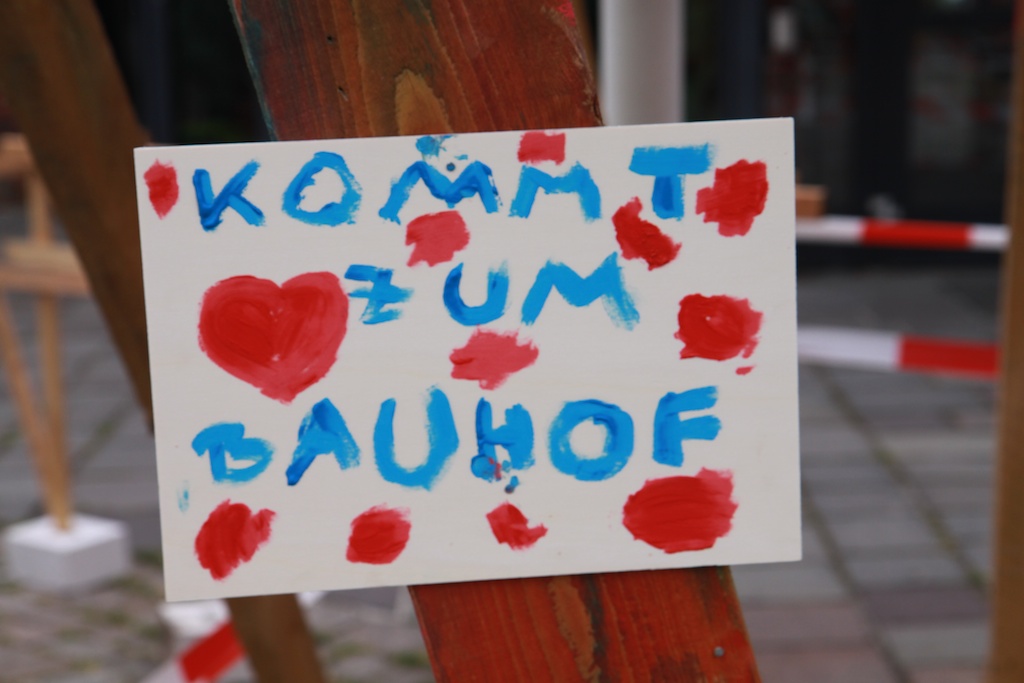 KOMMT
ZUM
BAUHOF